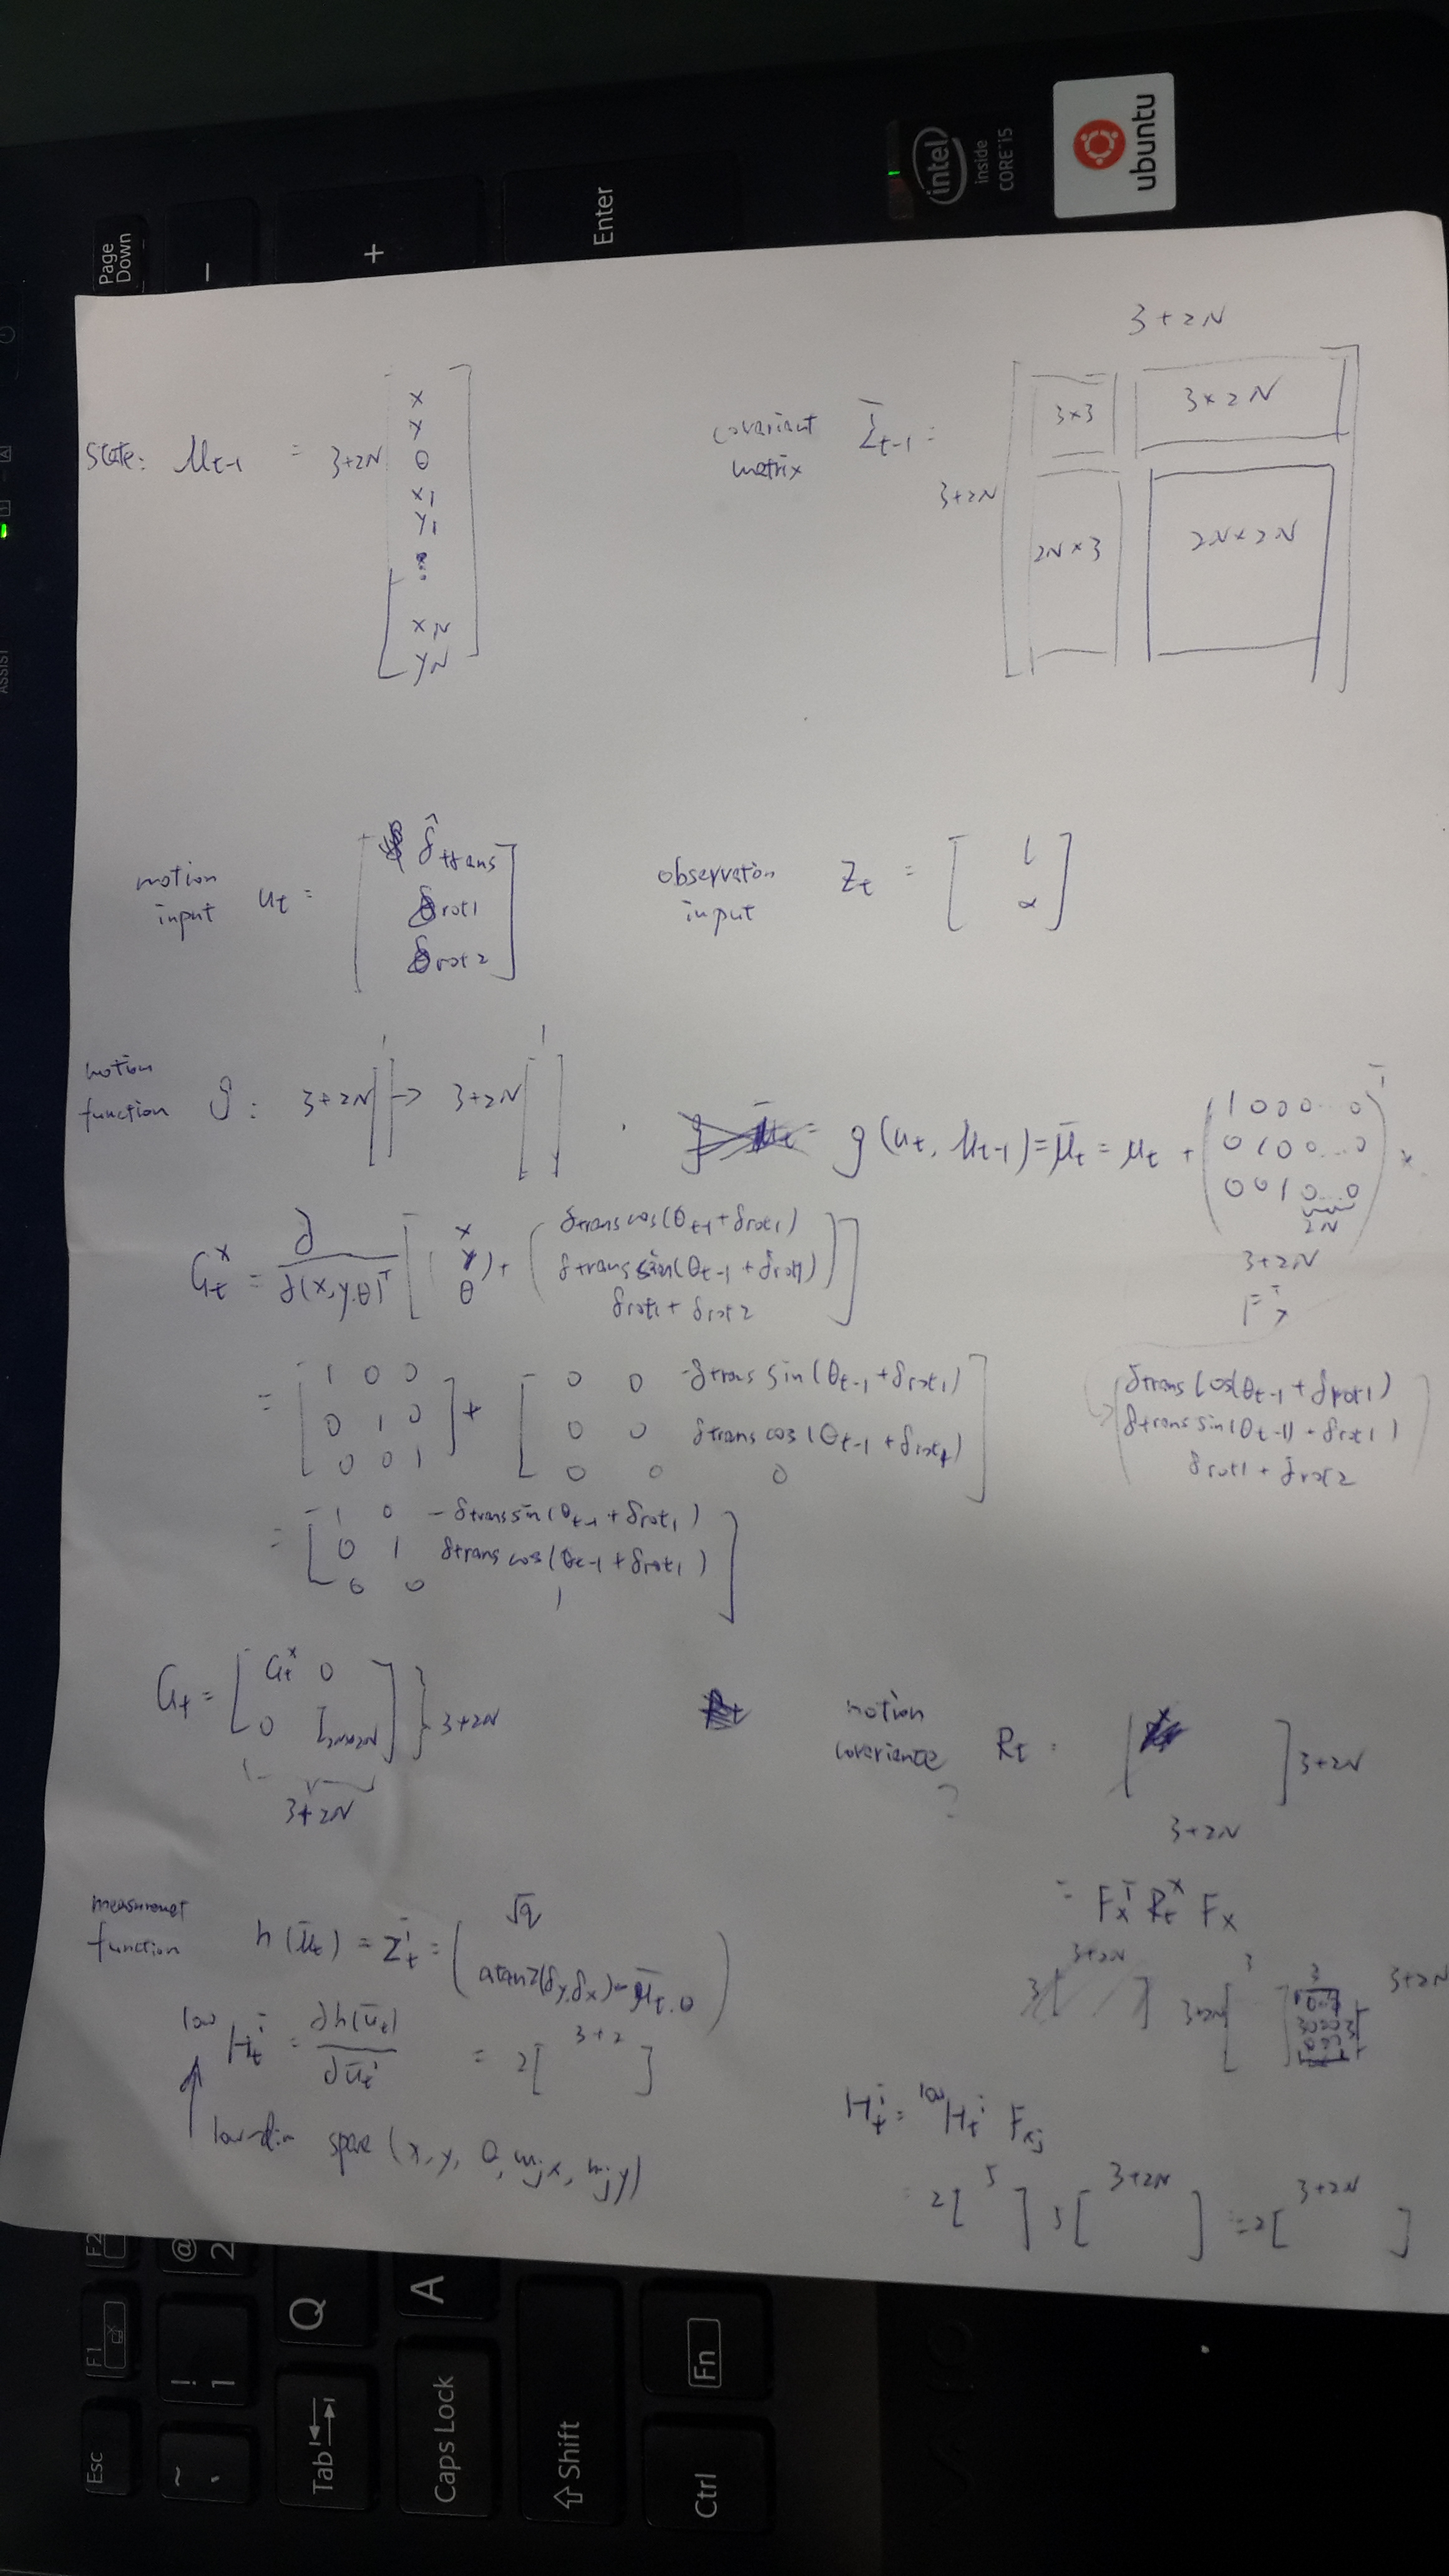 ubuntu
intel inside CORE i5
Page Down
-
+
Enter
ASSIST
3+2N
state: μt-1 = 3+2N [ x y θ x1 y1 ⋮ xN yN ]
covariant matrix Σ̄t-1 = 3+2N [ 3×3 3×2N
2N×3 2N×2N ]
motion input ut = [ δ̂trans
δrot1
δrot2 ]
observation input Zt = [ l
α ]
motion function g: 3+2N [ ] → 3+2N [ ]
g(ut, μt-1) = μ̄t = μt + ( 1 0 0 0 ... 0
0 1 0 0 ... 0
0 0 1 0 ... 0 )T ×
2N
3+2N
FxT
( δtrans cos(θt-1 + δrot1)
δtrans sin(θt-1) + δrot1)
δrot1 + δrot2 )
Gtx = ∂ / ∂(x,y,θ)T [ ( x y θ ) + ( δtrans cos(θt-1 + δrot1)
δtrans sin(θt-1 + δrot1)
δrot1 + δrot2 ) ]
= [ 1 0 0
0 1 0
0 0 1 ] + [ 0 0 -δtrans sin(θt-1 + δrot1)
0 0 δtrans cos(θt-1 + δrot1)
0 0 0 ]
= [ 1 0 -δtrans sin(θt-1 + δrot1)
0 1 δtrans cos(θt-1 + δrot1)
0 0 1 ]
Gt = [ Gtx 0
0 I2N×2N ] } 3+2N
3+2N
motion covariance ? Rt = [ ] 3+2N
3+2N
= FxT Rtx Fx
3 [ 3+2N ] 3+2N [ 3 ] 3 3+2N
measuremet function h(μ̄t) = Zti = ( √q
atan2(δy,δx) - μ̄t,θ )
low Hti = ∂h(ūt) / ∂ūti = 2 [ 3+2 ]
low-dim space (x, y, θ, mjx, mjy)
Hti = low Hti Fxj
= 2 [ 5 ] 5 [ 3+2N ] = 2 [ 3+2N ]
Esc
F1
F2
~ `
! 1
@ 2
Tab
Q
Caps Lock
A
Shift
Ctrl
Fn
VAIO